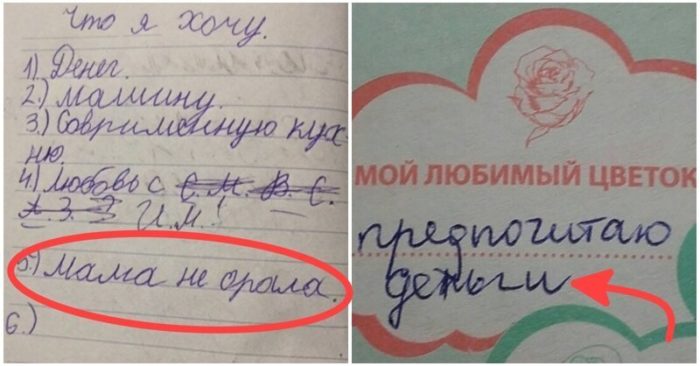 Что я хочу.
1) Денег.
2.) машину.
3.) Совримённую кух-
ню.
4.) любовь с С. М. В. С.
А. З. Э И.М.!
5.) Мама не орала.
6.)
МОЙ ЛЮБИМЫЙ ЦВЕТОК
предпочитаю
деньги